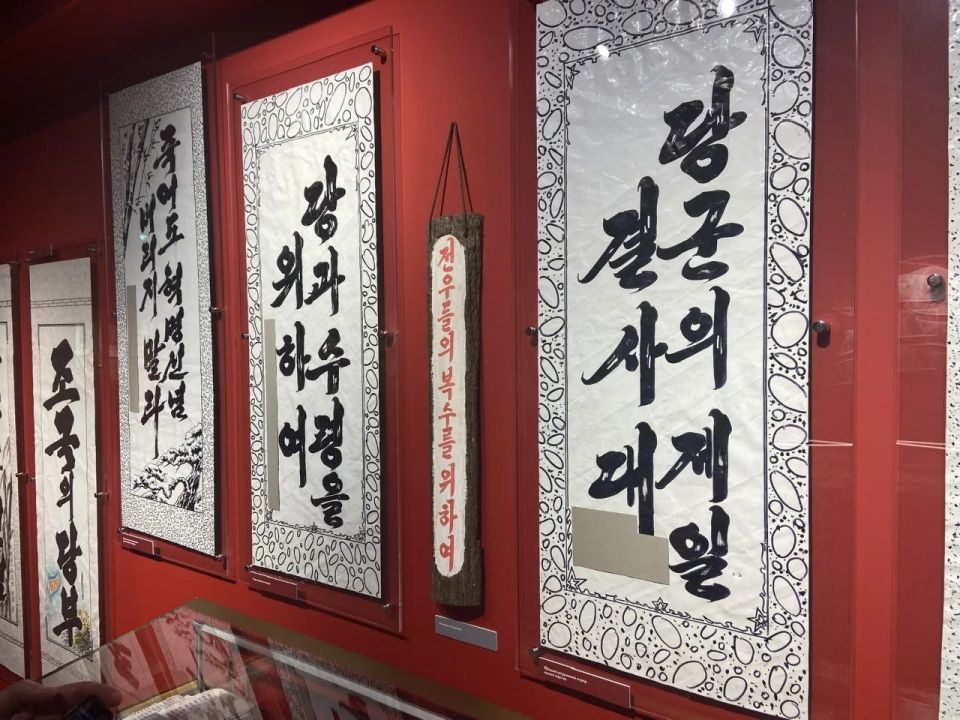 조국의 당부
죽어도 혁명신념
버리지 말라
당과 수령을
위하여
전우들의 복수를 위하여
당군의 제일
결사대